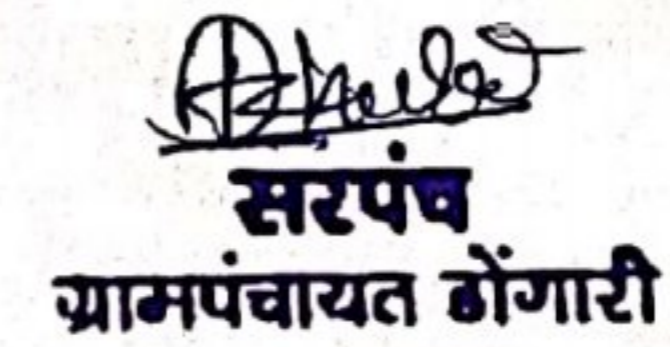 सरपंच
ग्रामपंचायत ठोंगारी